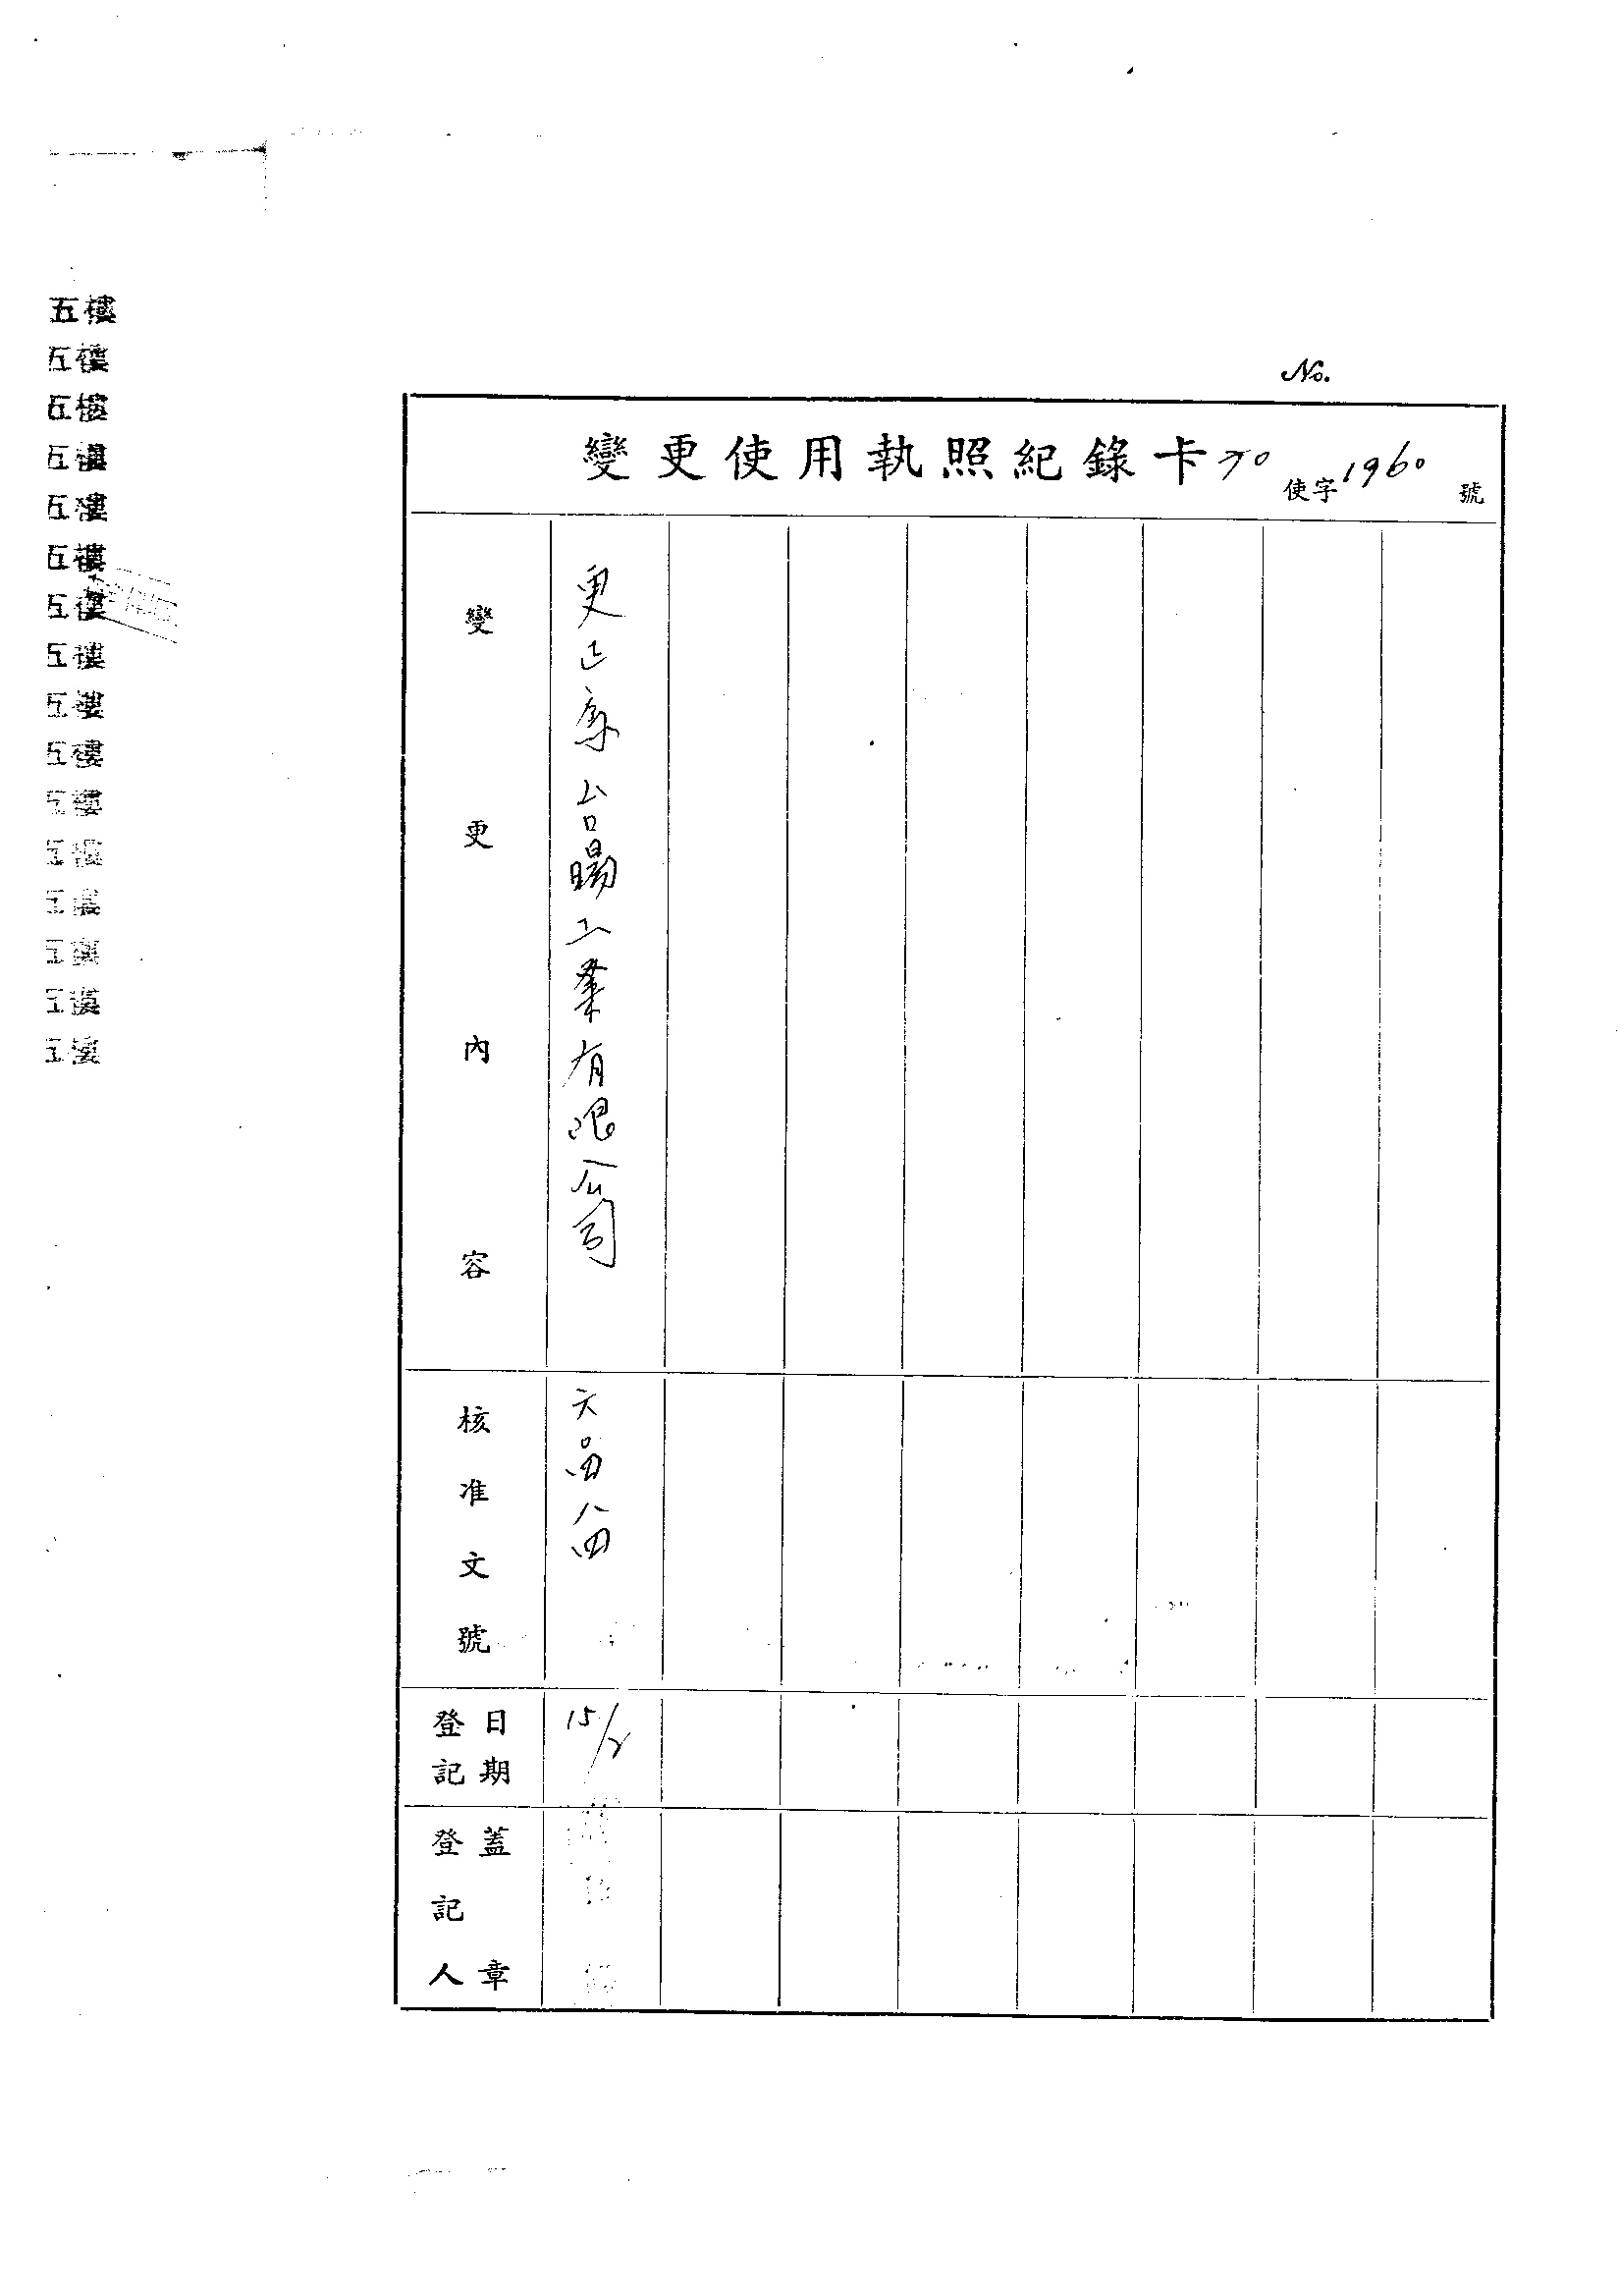 五樓
五樓
五樓
五樓
五樓
五樓
五樓
五樓
五樓
五樓
五樓
五樓
五樓
五樓
五樓
五樓
No.
變更使用執照紀錄卡 70 使字 1960 號
變更內容
更正為台暘工業有限公司
核准文號
登記日期
15/2
登記人蓋章